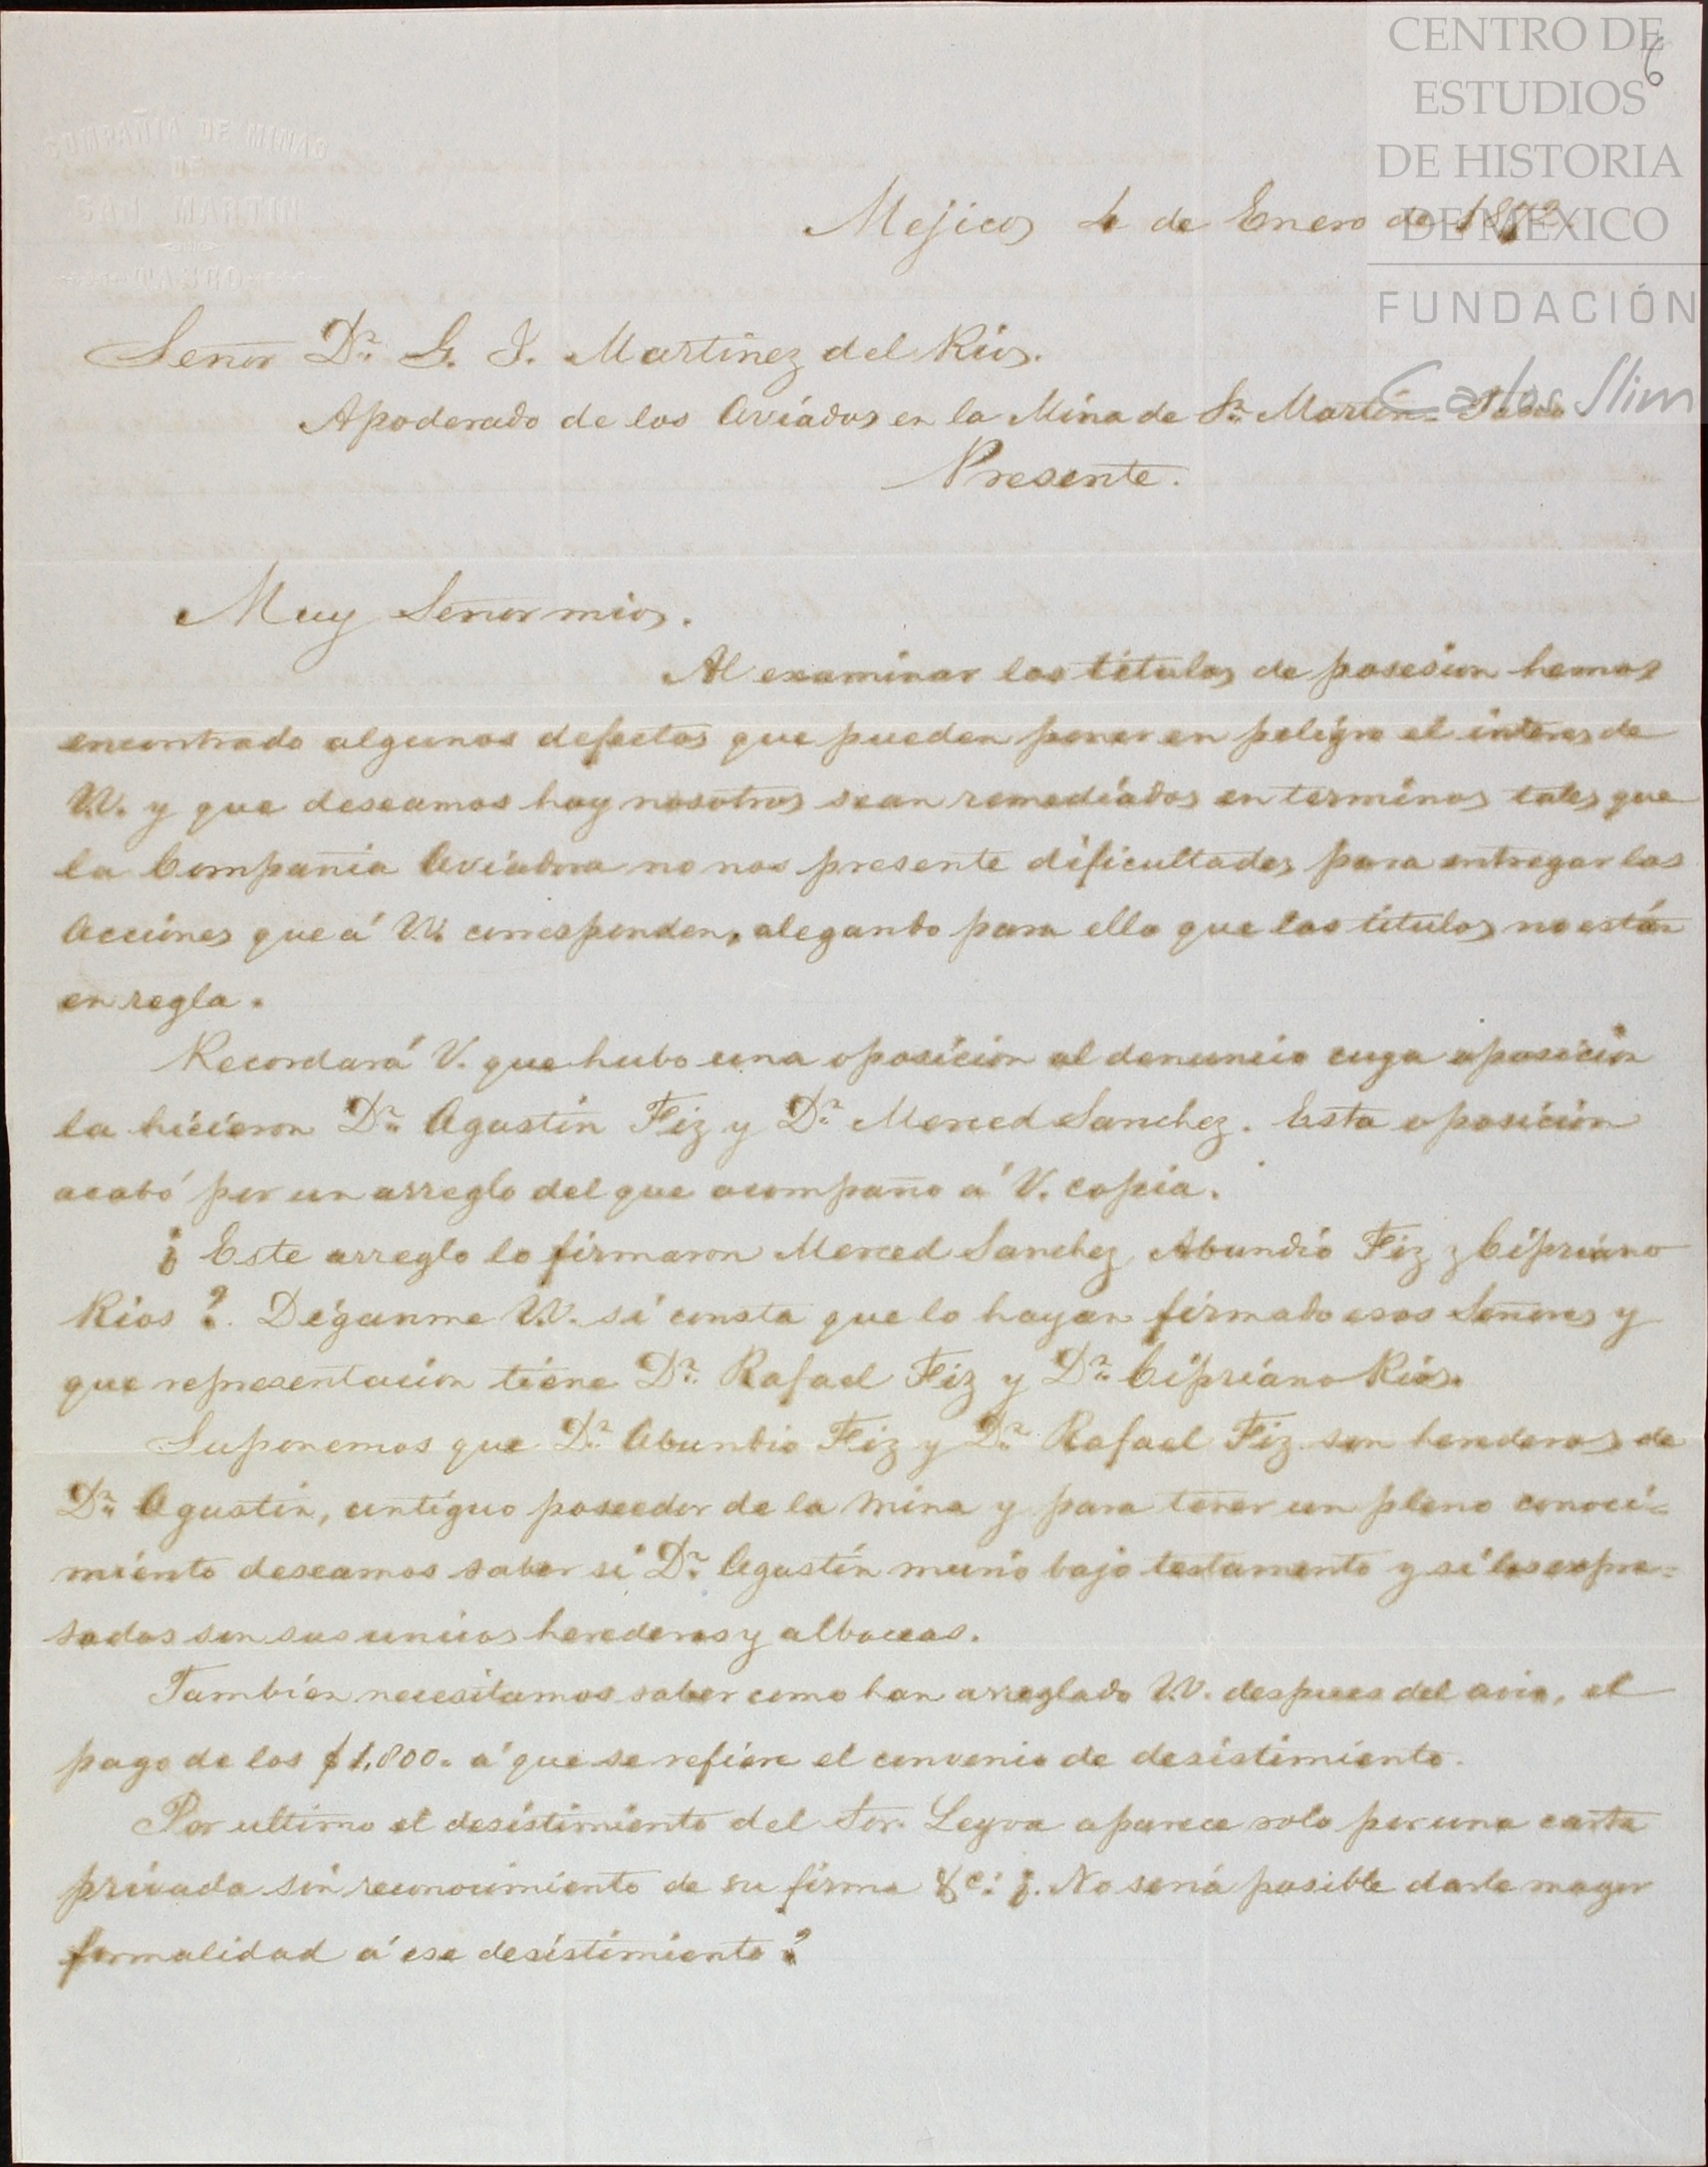 CENTRO DE
ESTUDIOS
DE HISTORIA
DE MÉXICO
FUNDACIÓN
Carlos Slim
6
COMPAÑIA DE MINAS
DE
SAN MARTIN
Mejico, 4 de Enero de 1872.
Señor Dn. G. J. Martinez del Rio.
Apoderado de los Aviados en la Mina de Sn. Martin =
Presente.
Muy Señor mio,.
Al examinar los titulos de posesion hemos
encontrado algunos defectos que pueden poner en peligro el interes de
V.V. y que deseamos hoy nosotros sean remediados en terminos tales que
la Compañia Aviadora no nos presente dificultades para entregar las
Acciones que á V.V. corresponden, alegando para ello que los titulos no están
en regla.
Recordará V. que hubo una oposicion al denuncio cuya oposicion
la hicieron Dn. Agustin Fiz y Dn. Merced Sanchez. Esta oposicion
acabó por un arreglo del que acompaño á V. copia.
¿ Este arreglo lo firmaron Merced Sanchez, Abundio Fiz y Cipriano
Rios ?. Diganme V.V. si consta que lo hayan firmado esos Señores y
que representacion tiene Dn. Rafael Fiz y Dn. Cipriano Rios.
Suponemos que Dn. Abundio Fiz y Dn. Rafael Fiz son herederos de
Dn. Agustin, antiguo poseedor de la Mina y para tener un pleno conoci=
miento deseamos saber si Dn. Agustin murió bajo testamento y si los expre=
sados son sus unicos herederos y albaceas.
Tambien necesitamos saber como han arreglado V.V. despues del avio, el
pago de los $1,800. á que se refiere el convenio de desistimiento.
Por ultimo el desistimiento del Sor. Leyva aparece solo por una carta
privada sin reconocimiento de su firma &c: ¿. No seria posible darle mayor
formalidad á ese desistimiento ?